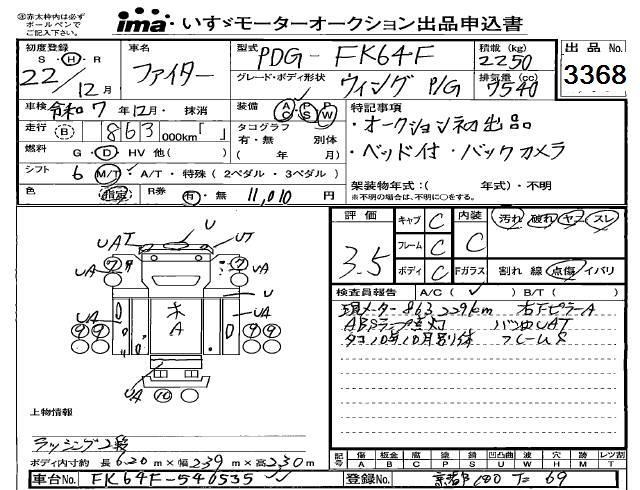 ※赤太枠内は必ず
ボールペンで
ご記入下さい。
ima いすゞモーターオークション出品申込書
初度登録 車名 型式 PDG-FK64F 積載(kg) 2250 出品No.
S・H・R
22/12月 ファイター グレード・ボディ形状 ウィング P/G 排気量(cc) 7540 3368
車検 令和7年12月・抹消 装備 AC PS PW 特記事項
走行 (B) 863 000km「 」 タコグラフ ・オークション初出品
燃料 G・D・HV 他( ) 有・無 別体 ・ベッド付・バックカメラ
( 年 月)
シフト 6 M/T・A/T・特殊(2ペダル・3ペダル)
架装物年式:( 年式)・不明
色 指定 R券 有・無 11,010円 ※不明の場合は、不明に○をする。
評価 3.5 キャブ C 内装 C 汚れ 破れ ヤコ スレ
フレーム C
ボディ C Fガラス 割れ 線 点傷 イバリ
検査員報告 A/C( ✓ ) B/T( )
現メーター863229km 右下ピラーA
ABSランプ点灯 バンパUAT
タコ10年10月別体 フレームS
U
UAT UT
⑦ ⑦
UA UA
U
木
A
⑨⑨ ⑨⑨
UA UA
UA
UA ⑩
上物情報
ラッシング2段
ボディ内寸約 長6.20m×幅2.39m×高2.30m
記号 傷A 板金B 腐C 塗S 凹凸曲U 波W 穴H 跡M レツ割T
車台No. FK64F-540535 登録No. 京都100 て 69